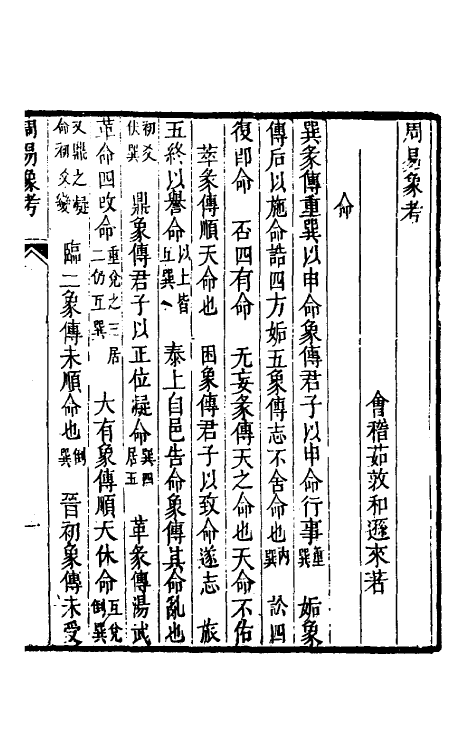 周易象考
會稽茹敦和遜來著
命
巽彖傳重巽以申命象傳君子以申命行事重巽 姤象
傳后以施命誥四方姤五象傳志不舍命也內巽 訟四
復即命 否四有命 无妄彖傳天之命也天命不佑
萃彖傳順天命也 困象傳君子以致命遂志 旅
五終以譽命以上皆互巽 泰上自邑告命象傳其命亂也
初爻伏巽 鼎象傳君子以正位凝命巽四居五 革彖傳湯武
革命四改命重兌之三居二仍互巽 大有象傳順天休命互兌倒巽
又鼎之疑命初爻變 臨二象傳未順命也倒巽 晉初象傳未受
周易象考
一